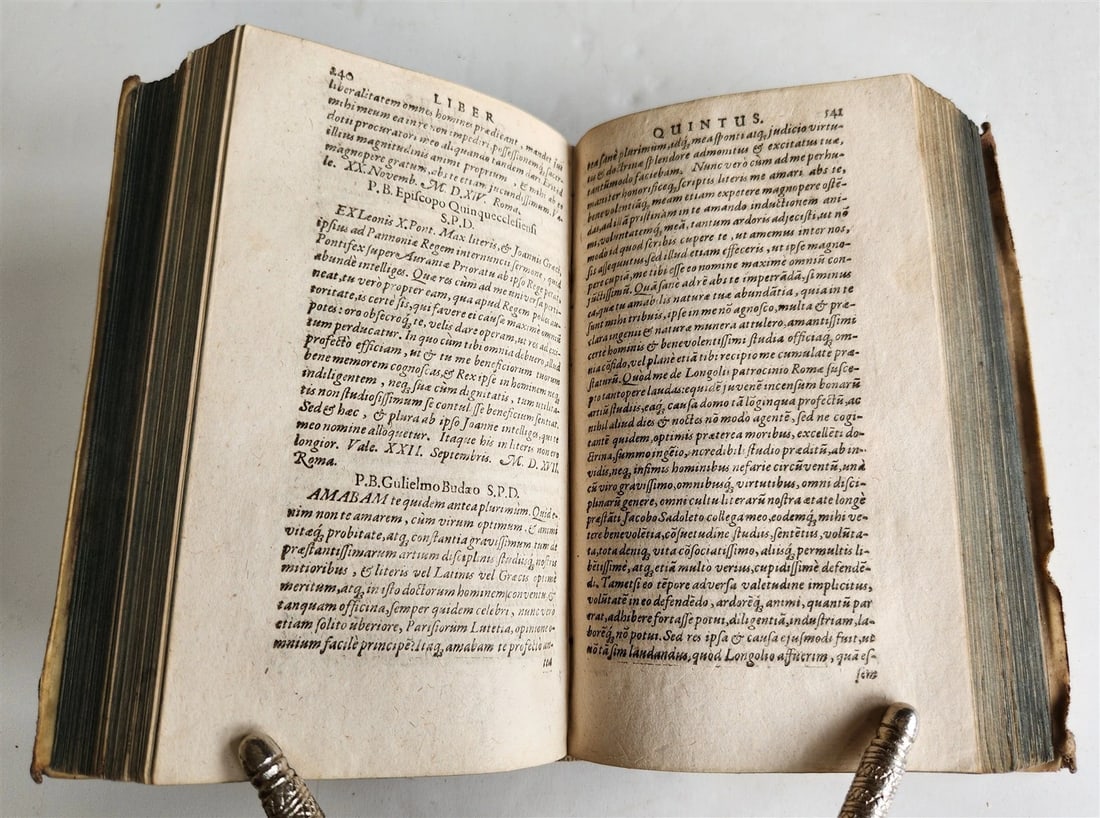 240
LIBER
liberalitatem omnes homines prædicant, mandet
mihi meum ea in re non impediri possessionem, sacer-
dotii procuratori meo aliquando tandem dari. Erit id
illius magnitudinis animi proprium, & mihi ab te
magnopere gratum, abs te etiam jucundissimum. Va-
le. XX. Novemb. M. D. XIV. Roma.
P. B. Episcopo Quinquecclesiensi
S. P. D.
EX Leonis X. Pont. Max literis, & Joannis Græci,
ipsius ad Pannoniæ Regem internuncii sermone, quid
Pontifex super Auraniæ Prioratu ab ipso Rege petat,
abundè intelliges. Quæ res cùm ad me universa perti-
neat, tu vero propter eam, qua apud Regem polles au-
toritate, is certè sis, qui favere ei causæ maximè omniũ
potes: oro obsecroq́; te, velis dare operam, ut res ad exi-
tum perducatur. In quo cum tibi omnia debuero, illud
profecto efficiam, ut & tu me beneficiorum tuorum
bene memorem cognoscas, & Rex ipse in hominem neq́;
indiligentem, neq́; suæ cùm dignitatis, tum utilita-
tis non studiosissimum se contulisse beneficium sentiat.
Sed & hæc, & plura ab ipso Joanne intelliges, qui te
meo nomine alloquetur. Itaque his in literis non ero
longior. Vale. XXII. Septembris. M. D. XVII.
Roma.
P. B. Gulielmo Budæo S. P. D.
AMABAM te quidem antea plurimum. Quid e-
nim non te amarem, cum virum optimum, & animi
vitæq́; probitate, atq́; constantia gravissimum tum de
præstantissimarum artium disciplinis studiisq́; nostris
mitioribus, & literis vel Latinis vel Græcis optimè
meritum, atq́; in isto doctorum hominem conventu &
tanquam officina, semper quidem celebri, nunc verò
etiam solito uberiore, Parisiorum Lutetia, opinione o-
mnium facilè principẽ? Itaq́; amabam te profecto an-
tea
QUINTUS.
541
tea sanè plurimum, idq́; mea sponti atq́; judicio virtu-
tu & doctrinæ splendore admonitus & excitatus tuæ,
tantũmodo faciebam. Nunc verò cùm ad me perhu-
maniter honorificeq́; scriptis literis me amari abs te,
benevolentiãq́; meam etiam expetere magnopere ostẽ-
das, ad illã pristinam in te amando inductionem ani-
mi, voluntatemq́; meã, tantum ardoris adjecisti, ut nõ
modo id quod scribis cupere te, ut amemus inter nos,
sis assequutus, sed illud etiam effeceris, ut ipse magno-
pere cupiã, me tibi esse eo nomine maximè omniũ con-
jũctissimũ. Quã sane ad rẽ abs te impetrãdã, si minus
ea, quæ tu amabilis naturæ tuæ abundãtia, quia in te
sunt mihi tribuis, ipse in me nõ agnosco, multa & præ-
clara ingenii & naturæ munera attulero, amantissimi
certè hominis & benevolentissimi studia officiaq́; om-
nia cõfido, vel planè etiã tibi recipio me cumulate præ-
staturũ. Quod me de Longolii patrocinio Romæ susce-
pto tantopere laudas: equidẽ juvenẽ incensum bonarũ
artiũ studiis, eaq́; causa domo tã lõginqua profectũ, ac
nihil aliud dies & noctes nõ modo agentẽ, sed ne cogi-
tantẽ quidem, optimis præterea moribus, excellẽti do-
ctrina, summo ingẽio, incredibili studio præditũ, ab in-
vidis, neq́; infimis hominibus nefarie circũventũ, unà
cũ viro gravissimo, omnibusq́; virtutibus, omni disci-
plinarũ genere, omni cultu literarũ nostra ætate longè
præstãti, Jacobo Sadoleto collega meo, eodemq́; mihi ve-
tere benevolẽtia, cõsuetudine studiis, sentẽtiis, volũta-
ta, tota deniq́; vita cõsociatissimo, aliisq́; permultis li-
bẽtissimè, atq́; etiã multo verius, cupidissimè defendẽ-
di. Tametsi eo tẽpore adversa valetudine implicitus,
volũtatẽ in eo defendẽdo, ardorẽq́; animi, quantũ par
erat, adhibere fortasse potui, diligentiã, industriam, la-
borẽq́; nõ potui. Sed res ipsa & causa ejusmodi fuit, ut
nõ tã sim laudandus, quod Longolio affuerim, quã es-
sem